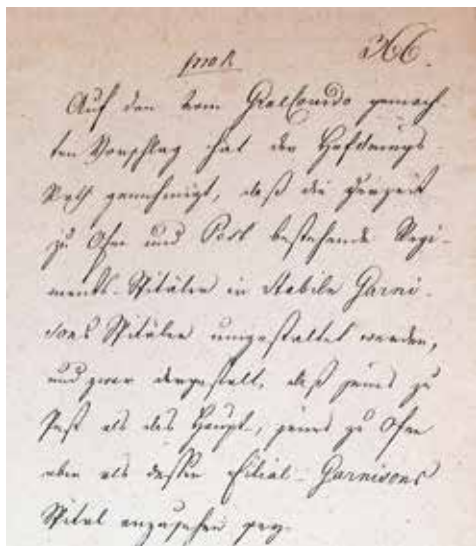 366.
Auf den vom GralCom̅do gemach
ten Vorschlag hat der Hofkriegs
Rath genehmigt, daß die derzeit
zu Ofen und Pest bestehende Regi-
ments-Spitäler in stabile Garni-
sons Spitäler umgestaltet werden,
und zwar dergestalt, daß jenes zu
Pest als das Haupt-, jenes zu Ofen
aber als dessen Filial-Garnisons
Spital anzusehen sey.